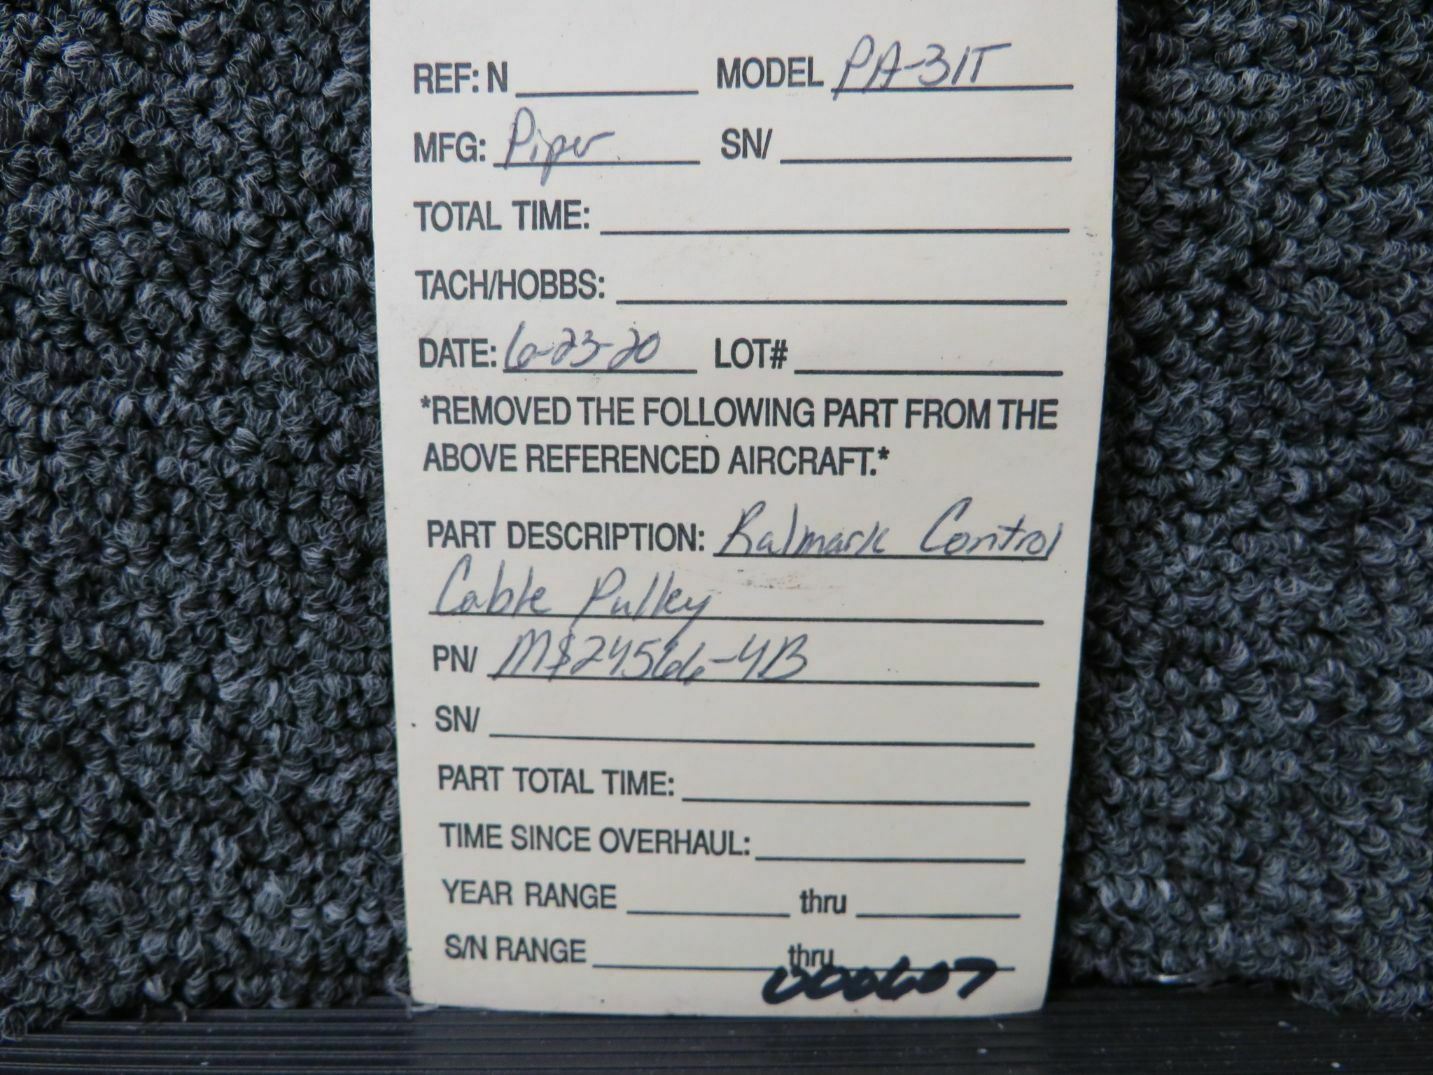 REF: N MODEL PA-31T
MFG: Piper SN/
TOTAL TIME:
TACH/HOBBS:
DATE: 6-23-20 LOT#
*REMOVED THE FOLLOWING PART FROM THE
ABOVE REFERENCED AIRCRAFT.*
PART DESCRIPTION: Ralmark Control
Cable Pulley
PN/ MS24566-4B
SN/
PART TOTAL TIME:
TIME SINCE OVERHAUL:
YEAR RANGE thru
S/N RANGE thru
000607